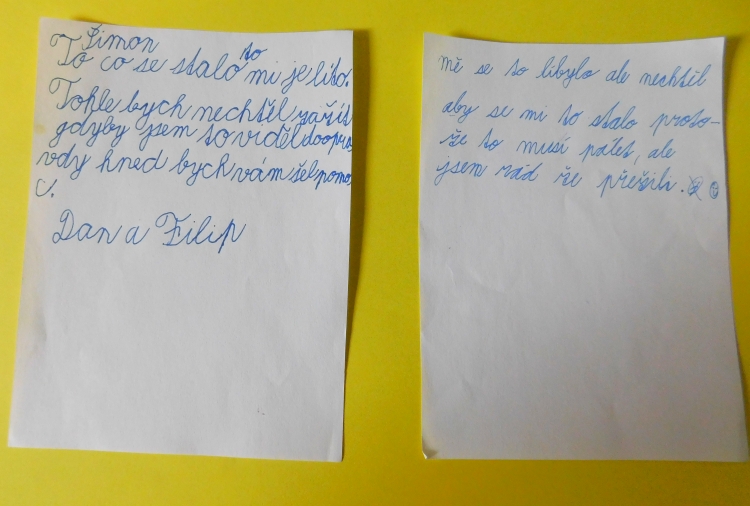 Šimon
To co se stalo to mi je líto.
Tohle bych nechtěl zažít
gdyby jsem to viděl doopra
vdy hned bych vám šel pomo
c.
Dan a Filip
mě se to libylo ale nechtěl
aby se mi to stalo proto-
že to musí pálet, ale
jsem rád že přežili.